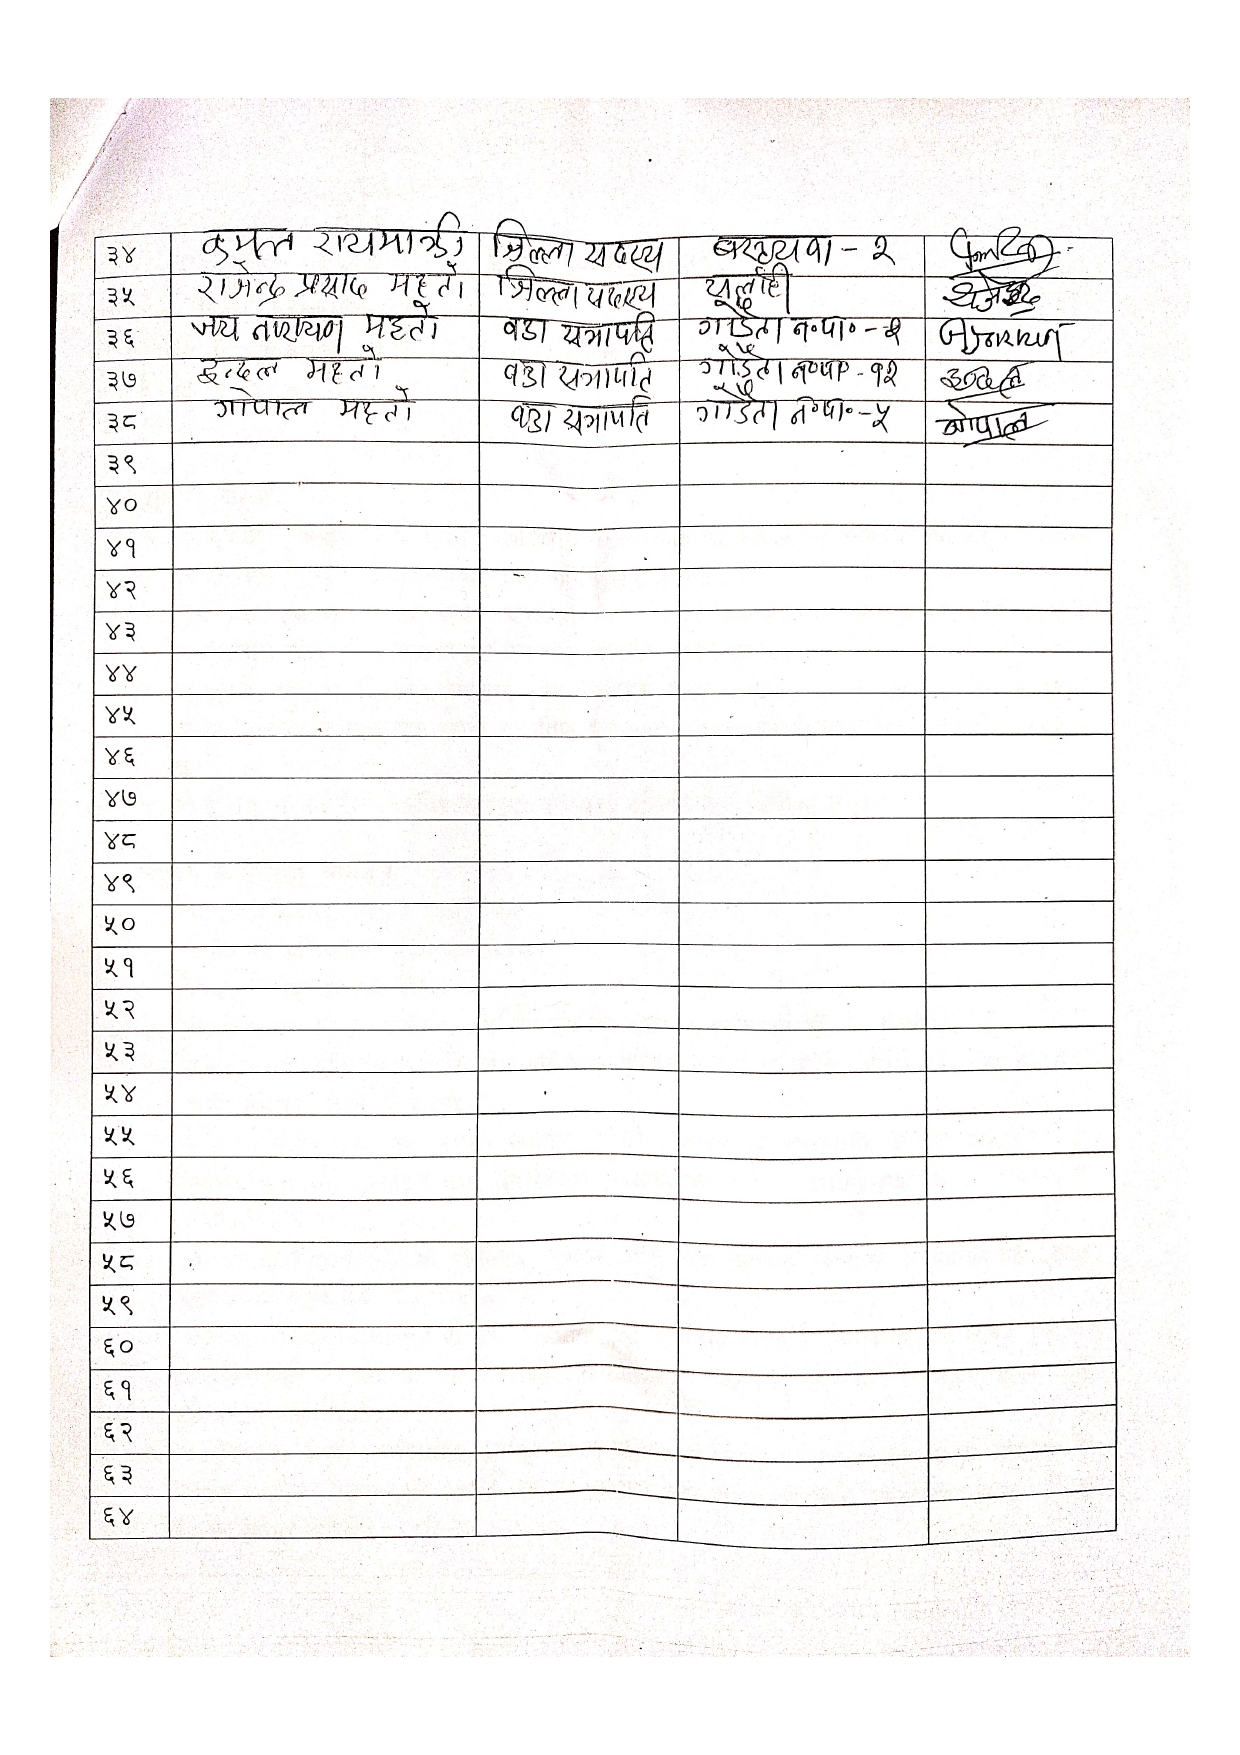 ३४ कुमल रायमाझी जिल्ला सदस्य बरहथवा - २
३५ राजेन्द्र प्रसाद महतो जिल्ला सदस्य सर्लाही
३६ जय नारायण महतो वडा सभापति गोडैता न०पा० - जयनारायण
३७ इन्दल महतो वडा सभापति गोडैता न०पा० - १२ इन्दल
३८ गोपाल महतो वडा सभापति गोडैता न०पा० - ५ गोपाल
३९
४०
४१
४२
४३
४४
४५
४६
४७
४८
४९
५०
५१
५२
५३
५४
५५
५६
५७
५८
५९
६०
६१
६२
६३
६४